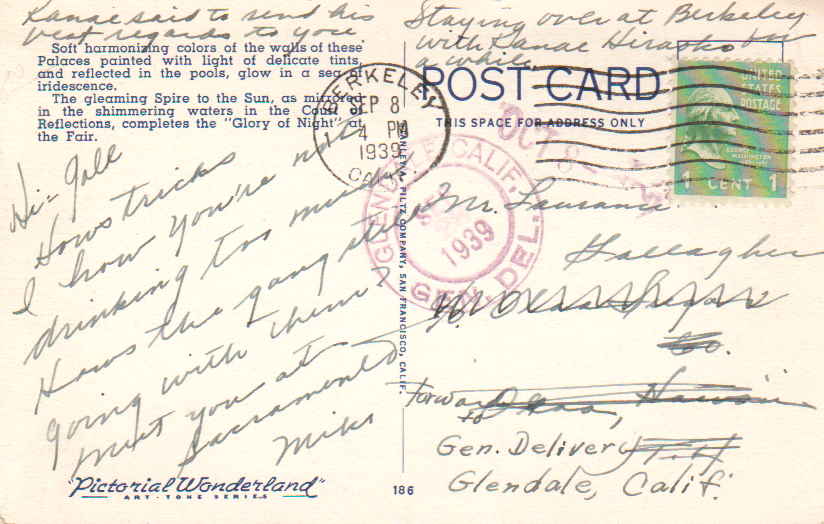 Kanae said to send his
best regards to you.
Soft harmonizing colors of the walls of these
Palaces painted with light of delicate tints,
and reflected in the pools, glow in a sea of
iridescence.
The gleaming Spire to the Sun, as mirrored
in the shimmering waters in the Court of
Reflections, completes the "Glory of Night" at
the Fair.
Hi - Gall
Hows tricks
I know you're not
drinking too much
Hows the gang
going with them?
Meet you at
Sacramento
Mike
"Pictorial Wonderland"
ART-TONE SERIES
Staying over at Berkeley
with Kanae Hiraoka for
a while
POST CARD
THIS SPACE FOR ADDRESS ONLY
BERKELEY
SEP 8
4 PM
1939
CALIF.
GLENDALE, CALIF.
1939
GEN. DEL.
OCT 9
UNITED
STATES
POSTAGE
GEORGE
WASHINGTON
1 CENT 1
STANLEY A. PILTZ COMPANY, SAN FRANCISCO, CALIF.
Mr. Laurance
Gallagher
Co.
Forward
to
Gen. Delivery
Glendale, Calif.
186